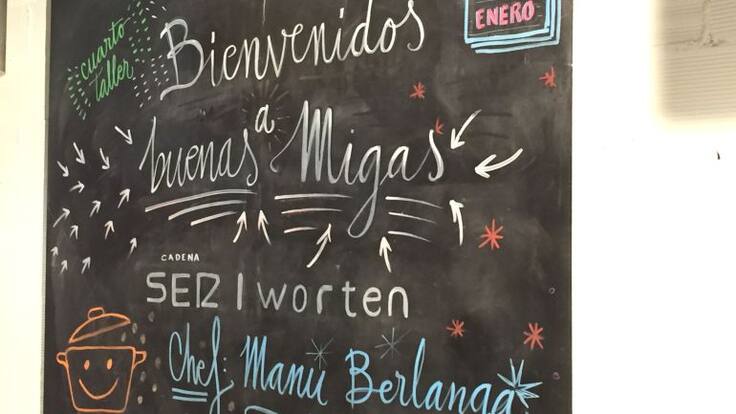 cuarto
taller
Bienvenidos
ENERO
a
buenas Migas
CADENA
SER | worten
Chef: Manu Berlanga